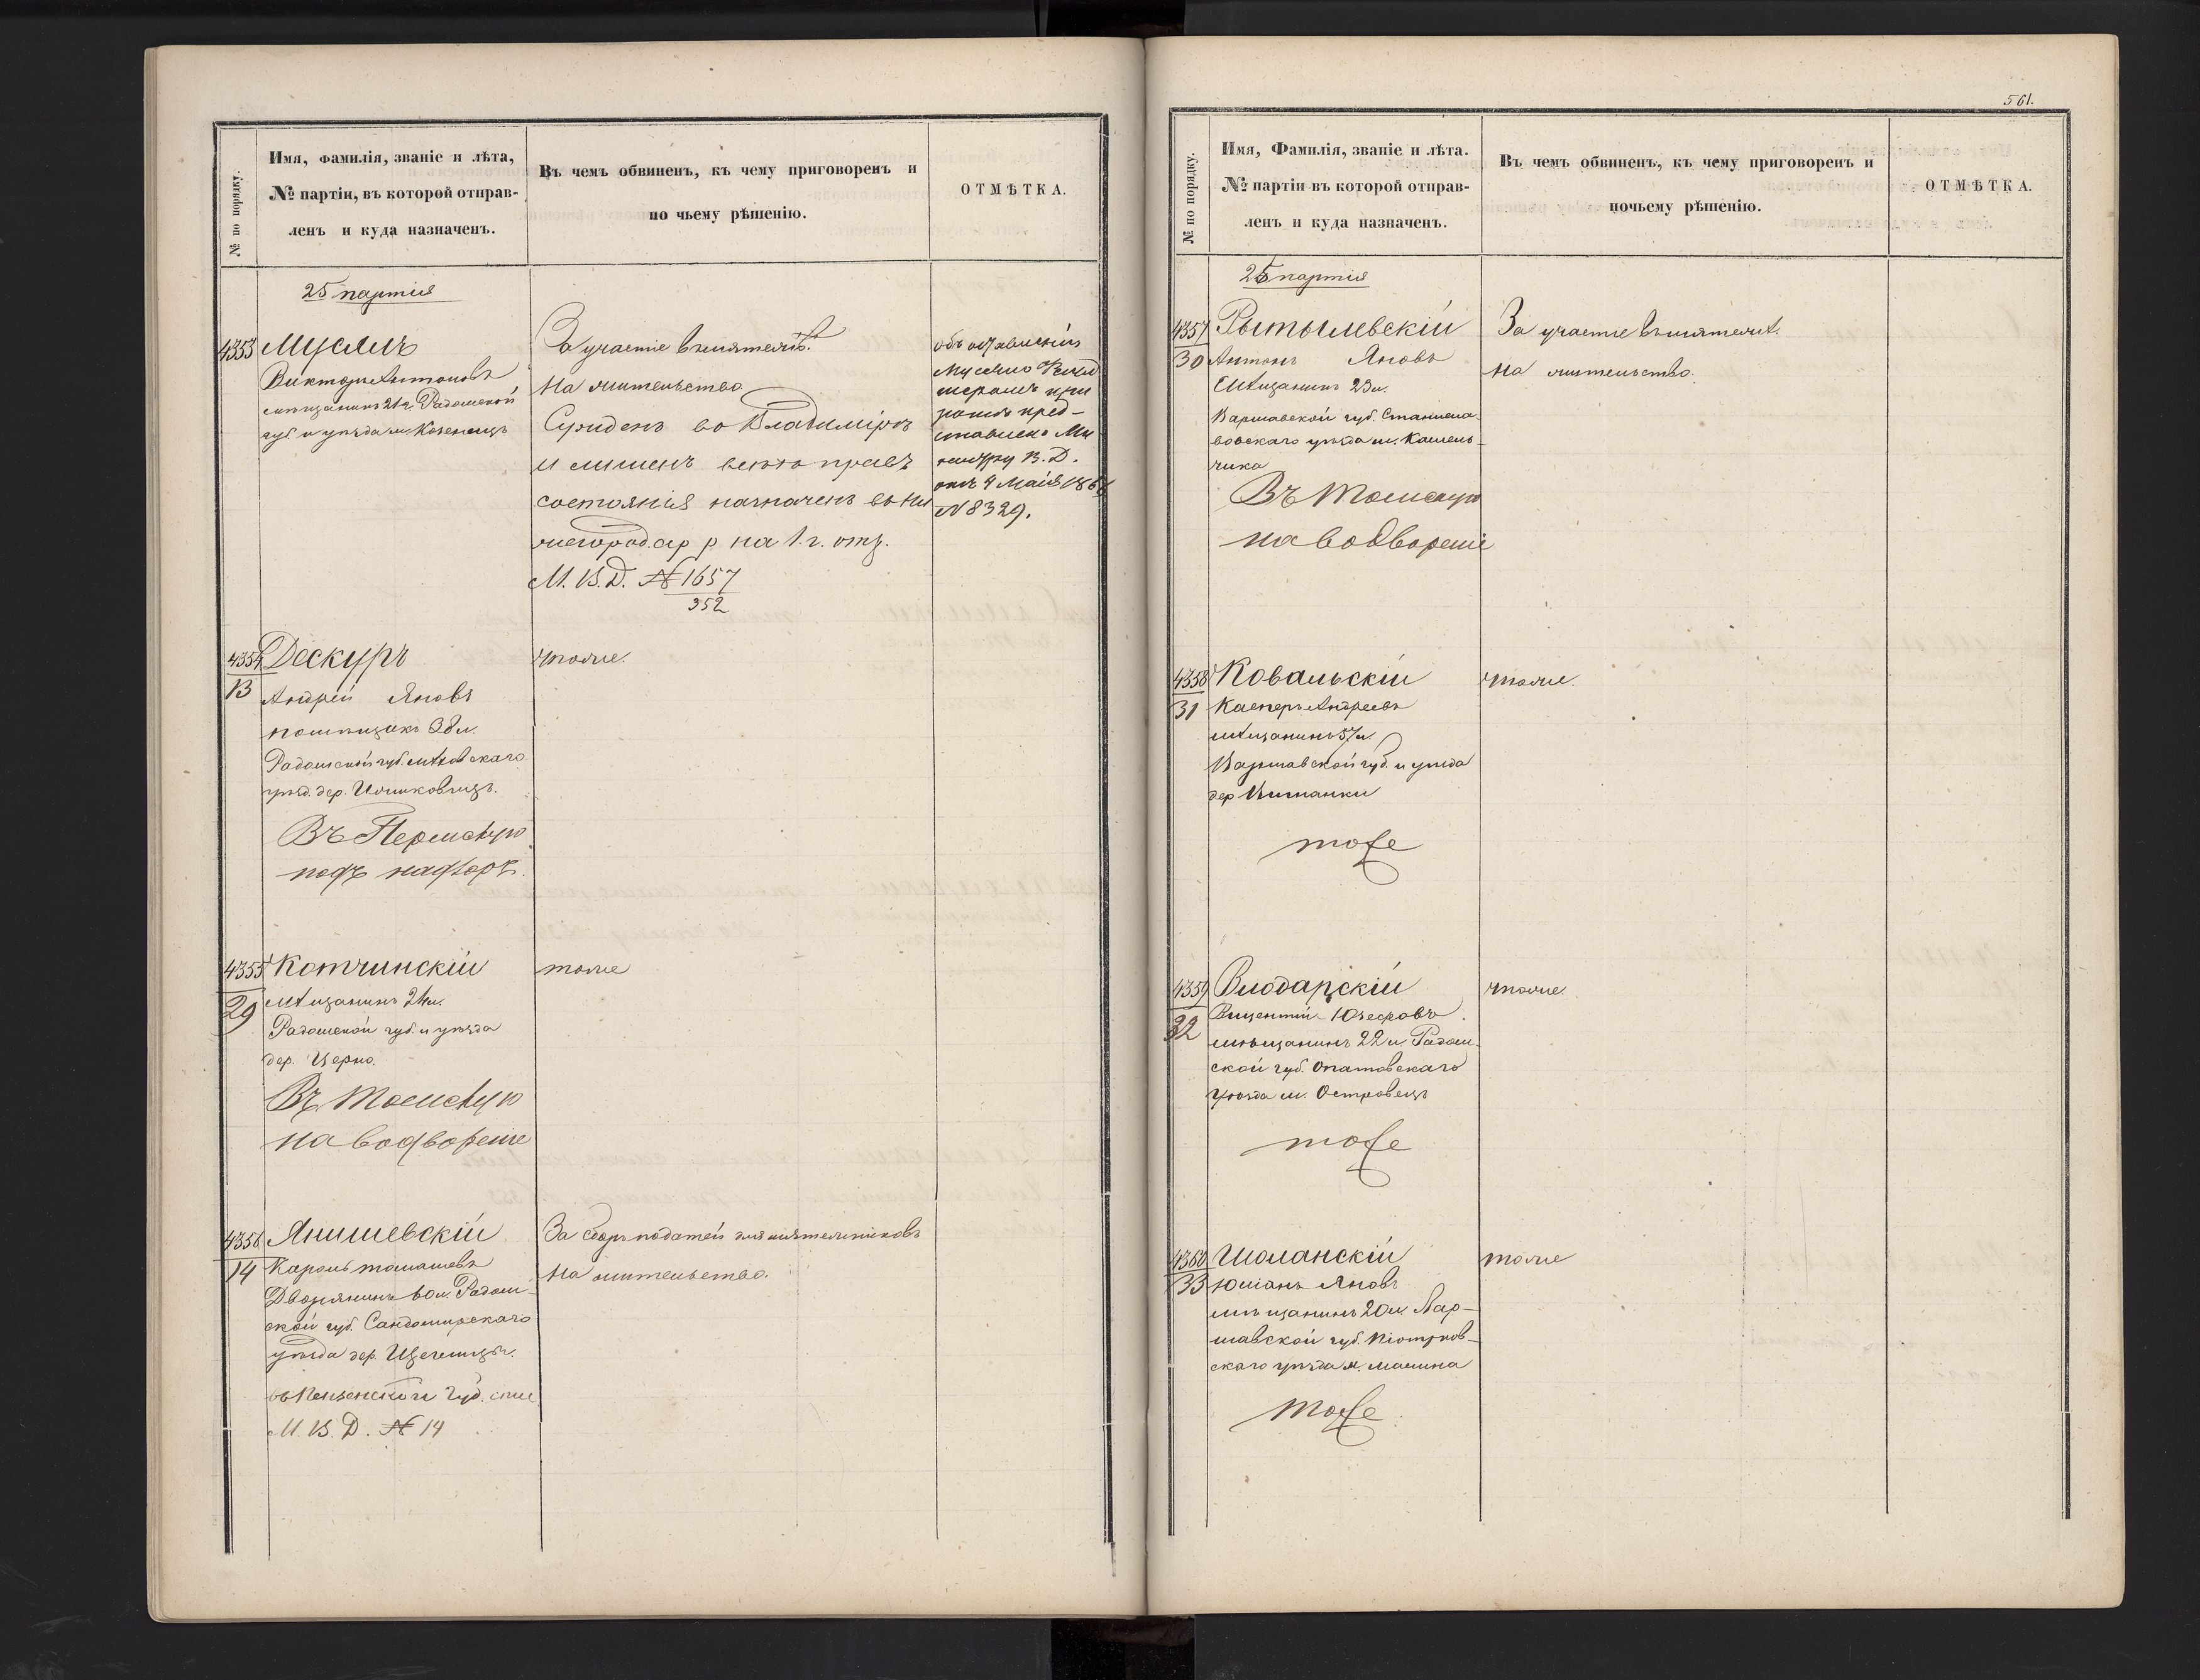 № по порядку.
Имя, фамилія, званіе и лѣта,
№ партіи, въ которой отправ-
ленъ и куда назначенъ.
Въ чемъ обвиненъ, къ чему приговоренъ и
по чьему рѣшенію.
ОТМѢТКА.
25 партія
4353 Мусліъ
Викторъ Антоновъ
мѣщанинъ 21 г. Радомской
губ. и уѣзда м. Козеницъ
За участіе въ мятежѣ.
На жительство
Сужденъ во Владимірѣ
и лишенъ всѣхъ правъ
состоянія назначенъ въ Ни
жегород. ар р на 1. г. отз.
М. В. Д. № 1657
352
объ оставленіи
ставлено Ми
нистру В. Д.
отъ 9 Маія 186
№ 8329.
4354 Дескуръ
13
Андрей Яновъ
помѣщикъ 38 л.
Радомской губ. Мѣховскаго
уѣзд. дер.
Въ Пермскую
подъ надзоръ.
тоже.
4355 Котчинскій
29
мѣщанинъ 24 л.
Радомской губ. и уѣзда
дер. Церно.
Въ Томскую
на водвореніе
тоже
4356 Янишевскій
14
Кароль Томашевъ
Дворянинъ 60 л. Радом-
ской губ. Сандомирскаго
уѣзда дер.
въ Пензенской губ.
М. В. Д. № 14
За сборъ податей для мятежниковъ
На жительство.
561.
№ по порядку.
Имя, Фамилія, званіе и лѣта.
№ партіи въ которой отправ-
ленъ и куда назначенъ.
Въ чемъ обвиненъ, къ чему приговоренъ и
почьему рѣшенію.
ОТМѢТКА.
25 партія
4357 Рытылевскій
30
Антонъ Яновъ
Мѣщанинъ 23 л.
Варшавской губ. Станисла-
вовскаго уѣзда м. Камень-
чика
Въ Томскую
на водвореніе
За участіе въ мятежѣ.
На жительство.
4358 Ковальскій
31
Касперъ Андреевъ
мѣщанинъ 57 л.
Варшавской губ. и уѣзда
дер
тоже
тоже.
4359 Влодарскій
32
Вицентій Юзефовъ
мѣщанинъ 22 л. Радом-
ской губ. Опатовскаго
уѣзда м. Островецъ
тоже
тоже.
4360 Шоланскій
33
Юліанъ Яновъ
мѣщанинъ 20 л. Вар-
шавской губ. Піотрков-
скаго уѣзда м.
тоже
тоже